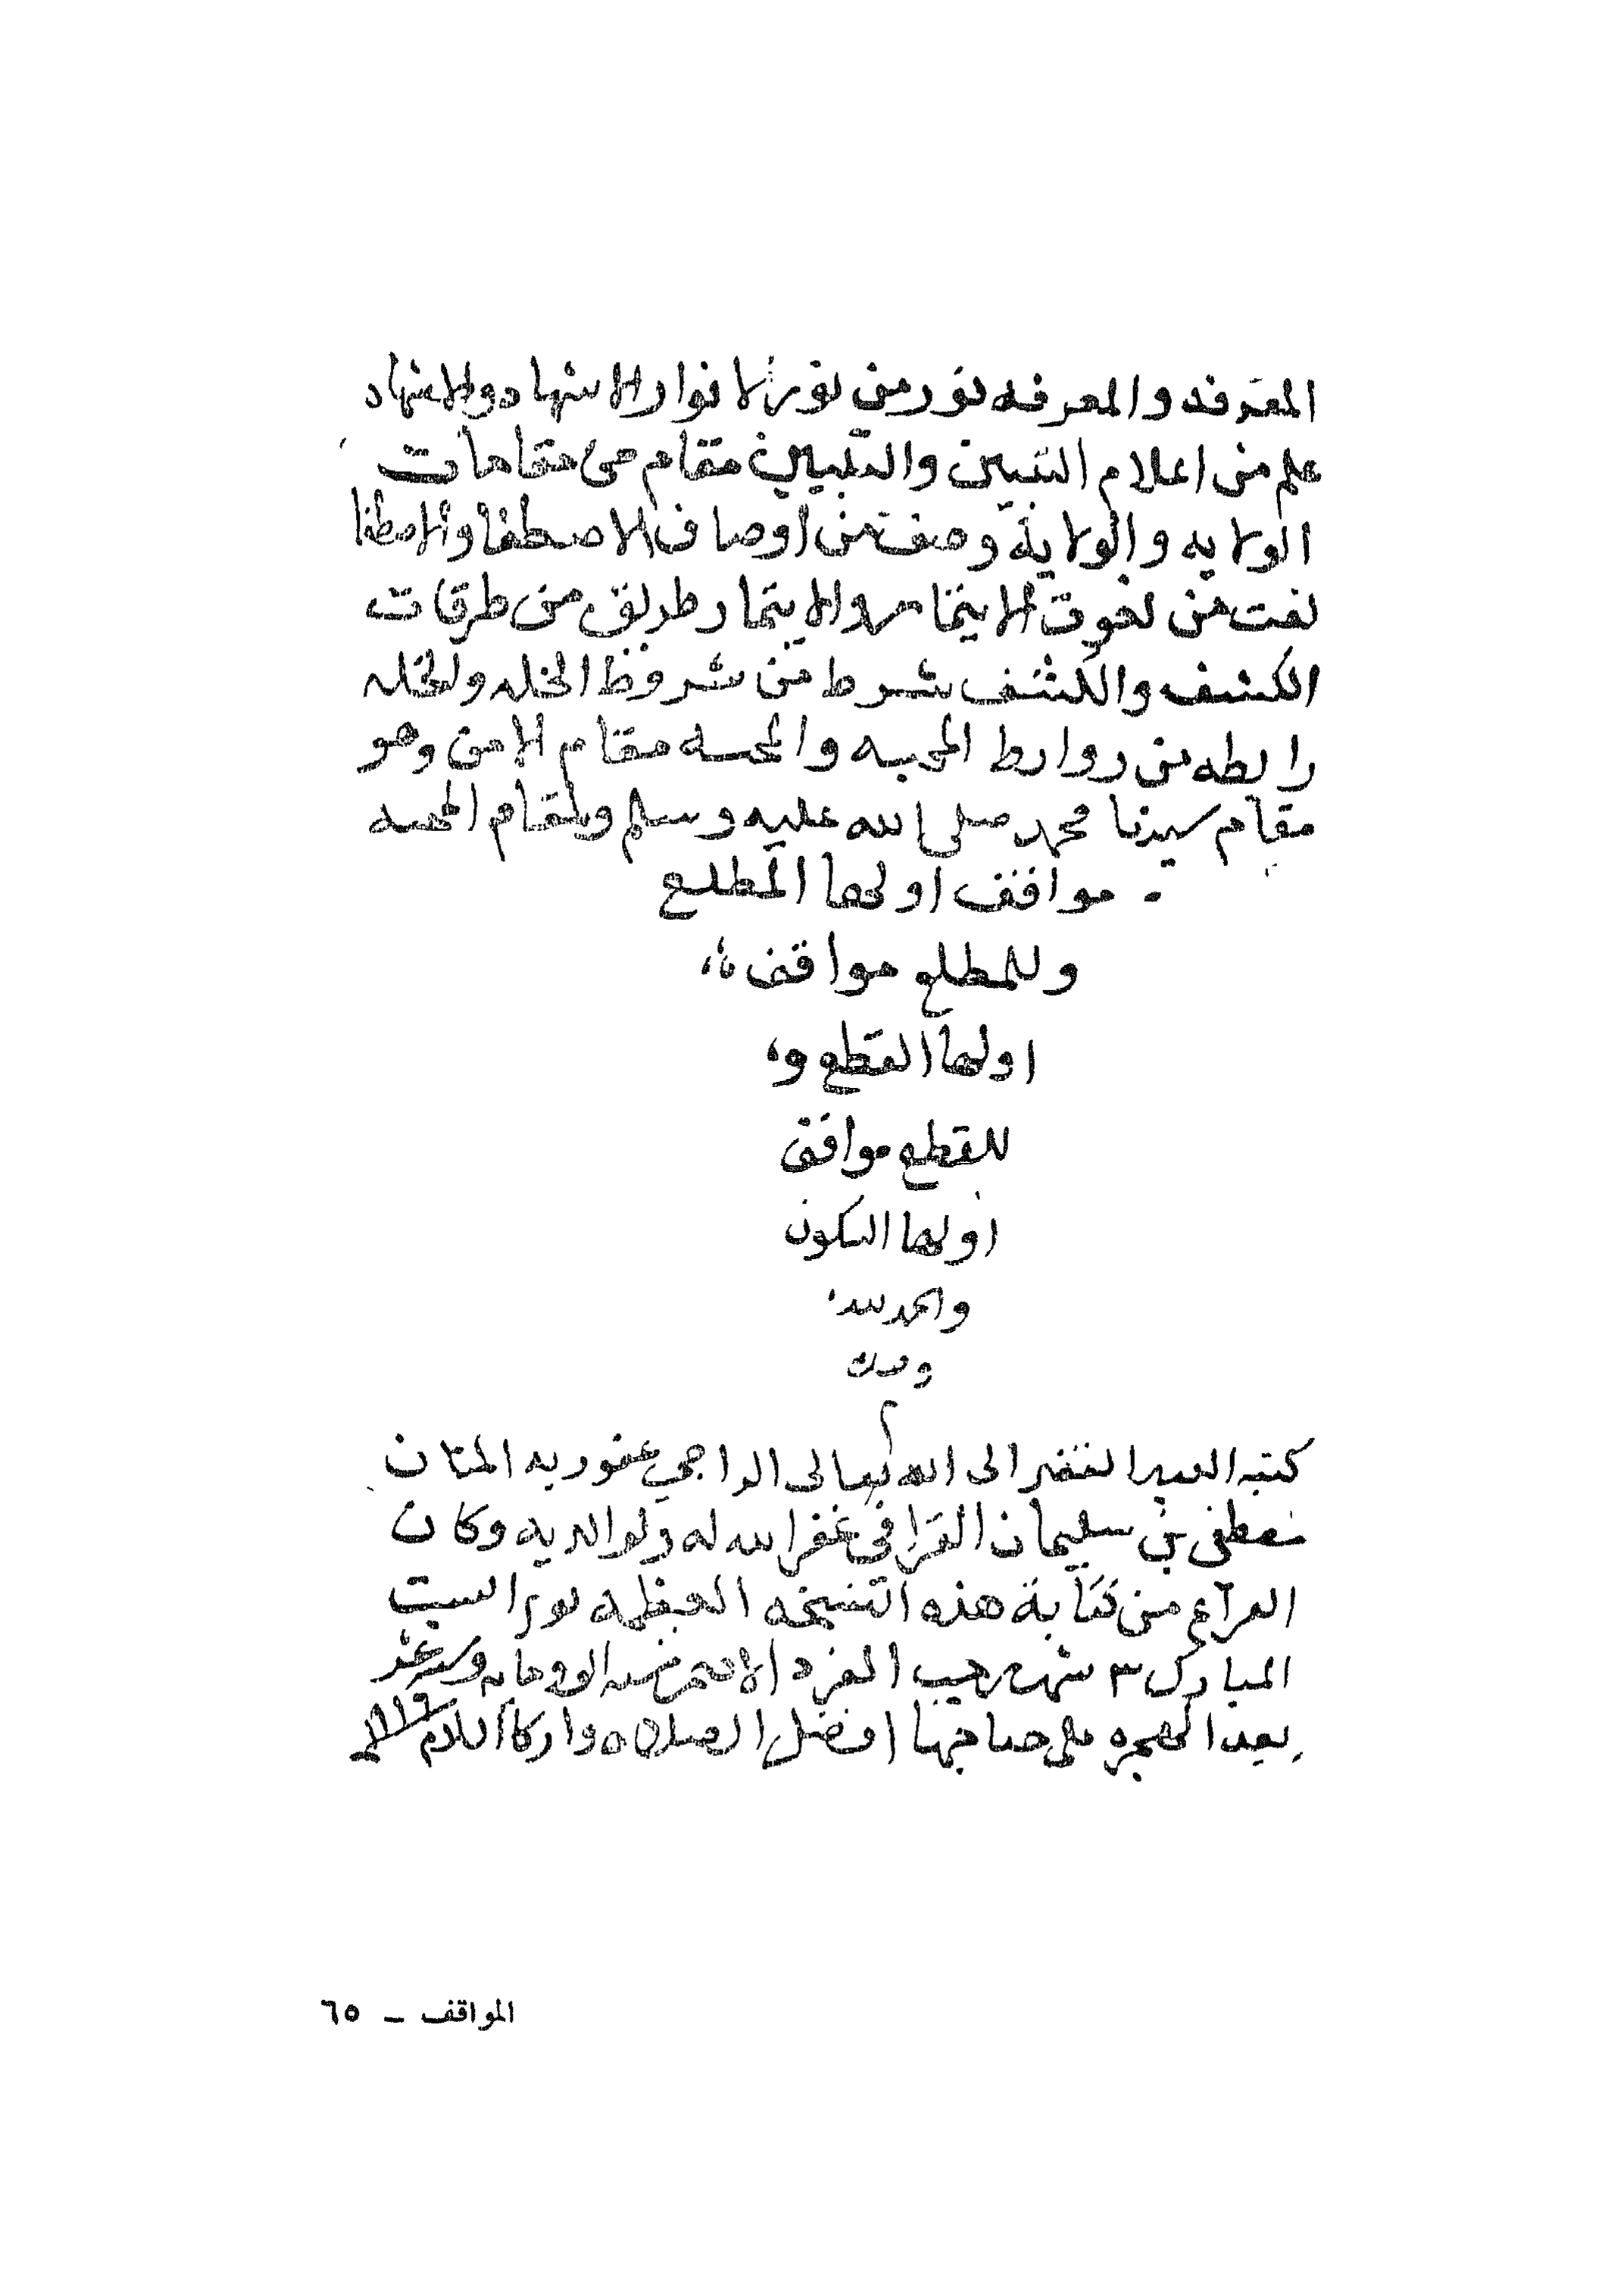 المعرفه والمعرفه نور من نور الانوار الاشهاد والاشهاد
علم من اعلام التبيين والتبيين مقام من مقامات
الولايه والولاية وصف من اوصاف الاصطفا والاصطفا
نعت من نعوت الايتمار والايتمار طريق من طرقات
الكشف والكشف شرط من شروط الخله والخله
رابطه من روابط المحبه والمحبه مقام الامن وهو
مقام سيدنا محمد صلى الله عليه وسلم ولمقام المحبه
مواقف اولها المطلع
وللمطلع مواقف
اولها القطع و
للقطع مواقف
اولها السكون
والحمد لله
وحده
كتبه العبد الفقير الى الله تعالى الراجي عفو ربه المنان
مصطفى بن سليمان القرافي غفر الله له ولوالديه وكان
الفراغ من كتابة هذه النسخه العظيمه يوم السبت
المبارك ٣ شهر رجب الفرد الاصم سنه الف ومايه وسته عشر
بعد الهجره على صاحبها افضل الصلاه وازكا السلام ١١١٦
المواقف - ٦٥